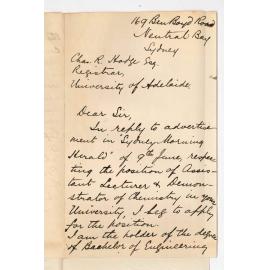 169 Ben Boyd Road
Neutral Bay
Sydney
Chas. R. Hodge Esq.
Registrar,
University of Adelaide.
Dear Sir,
In reply to advertise-
ment in "Sydney Morning
Herald" of 9th June, respec-
ting the position of Assis-
tant Lecturer & Demon-
strator of Chemistry in your
University, I beg to apply
for the position.
I am the holder of the degree
of Bachelor of Engineering